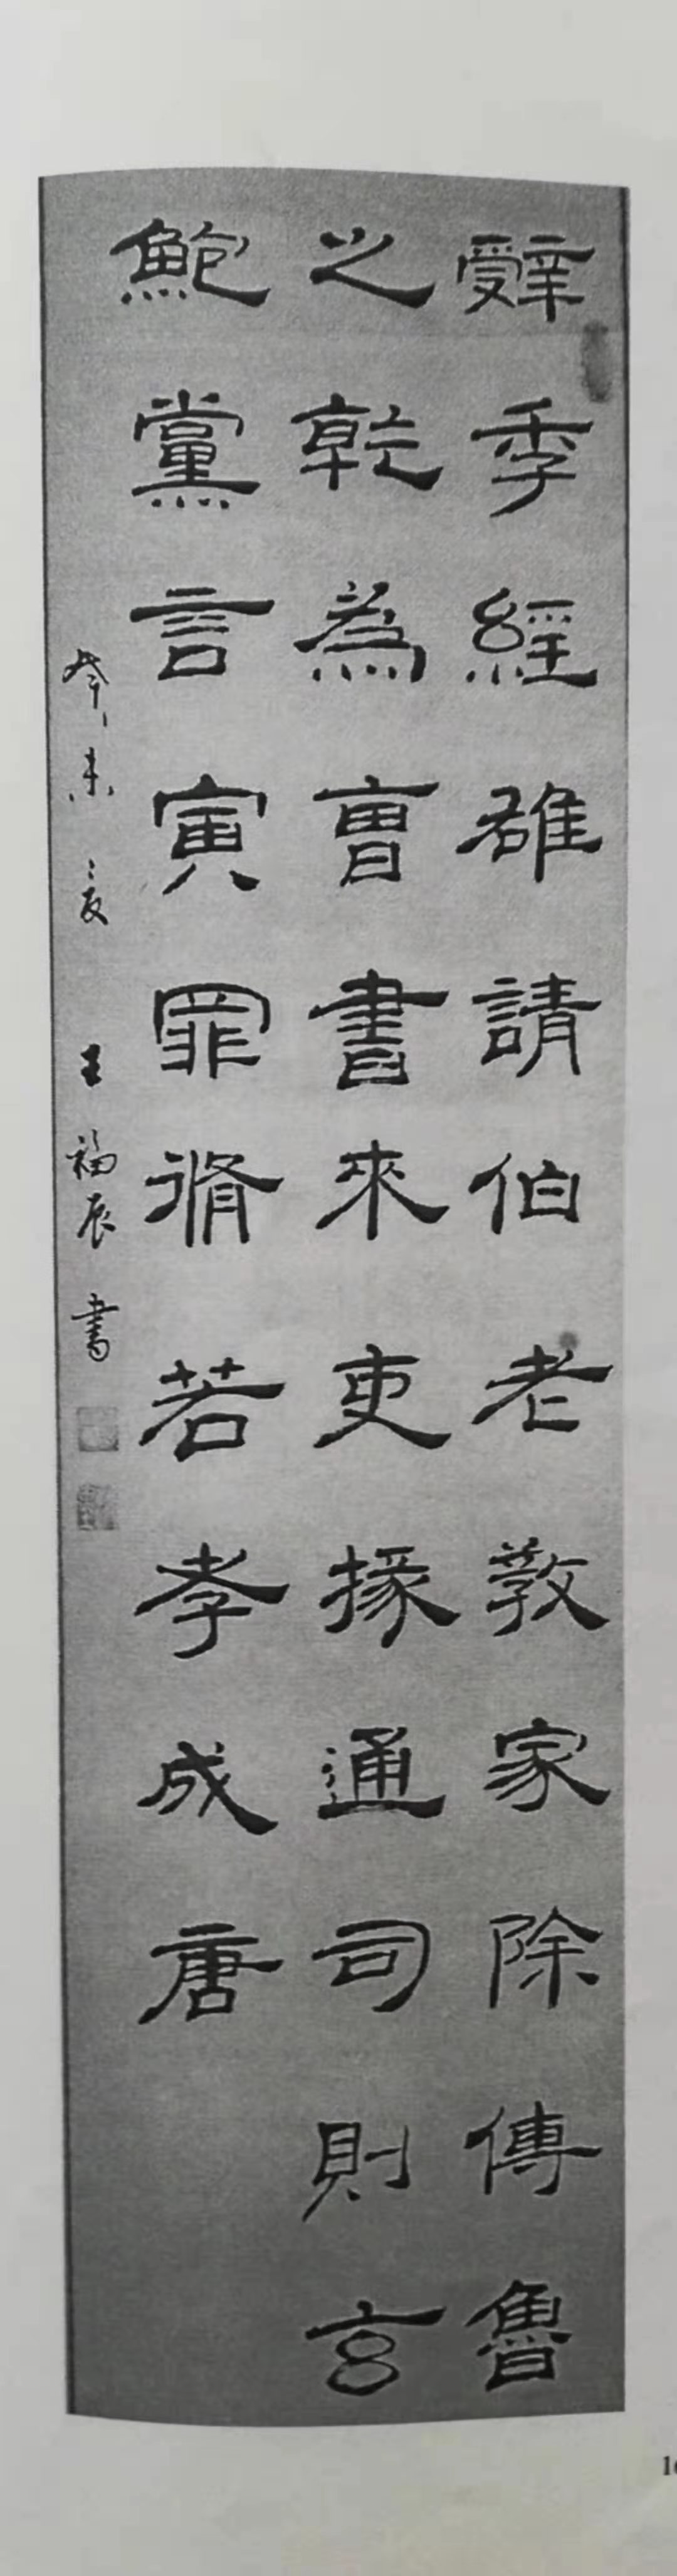 辤季經雄請伯老教家除傳魯
之乾為曹書來吏掾通司則玄
鮑黨言寅罪脩若孝成唐
癸未夏 王福辰書